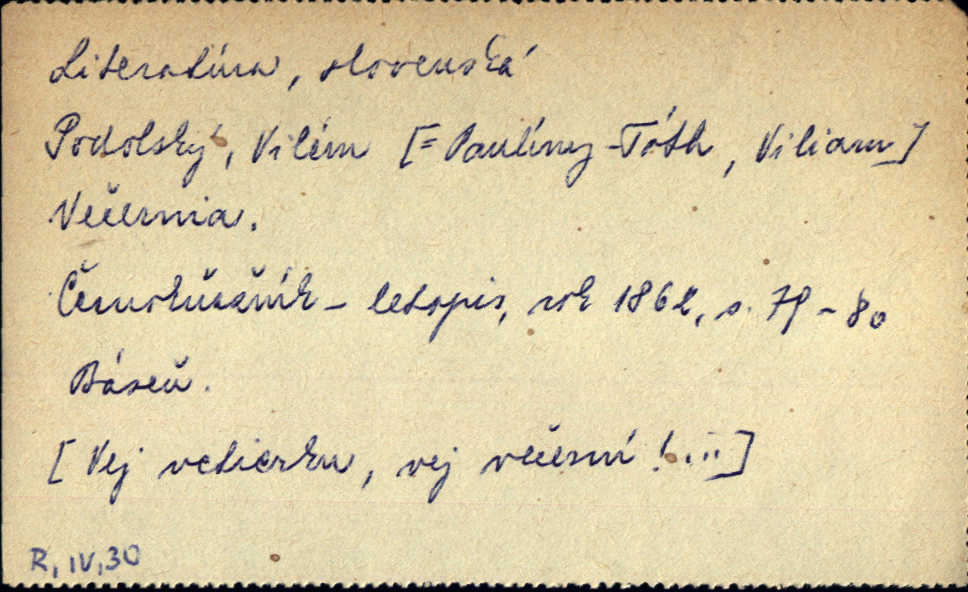 Literatúra, slovenská
Podolský, Vilém [= Paulíny-Tóth, Viliam]
Večernia.
Černokňažník - letopis, rok 1862, s. 79-80
Báseň.
[Vej vetierku, vej večerní!...]
R, IV, 30